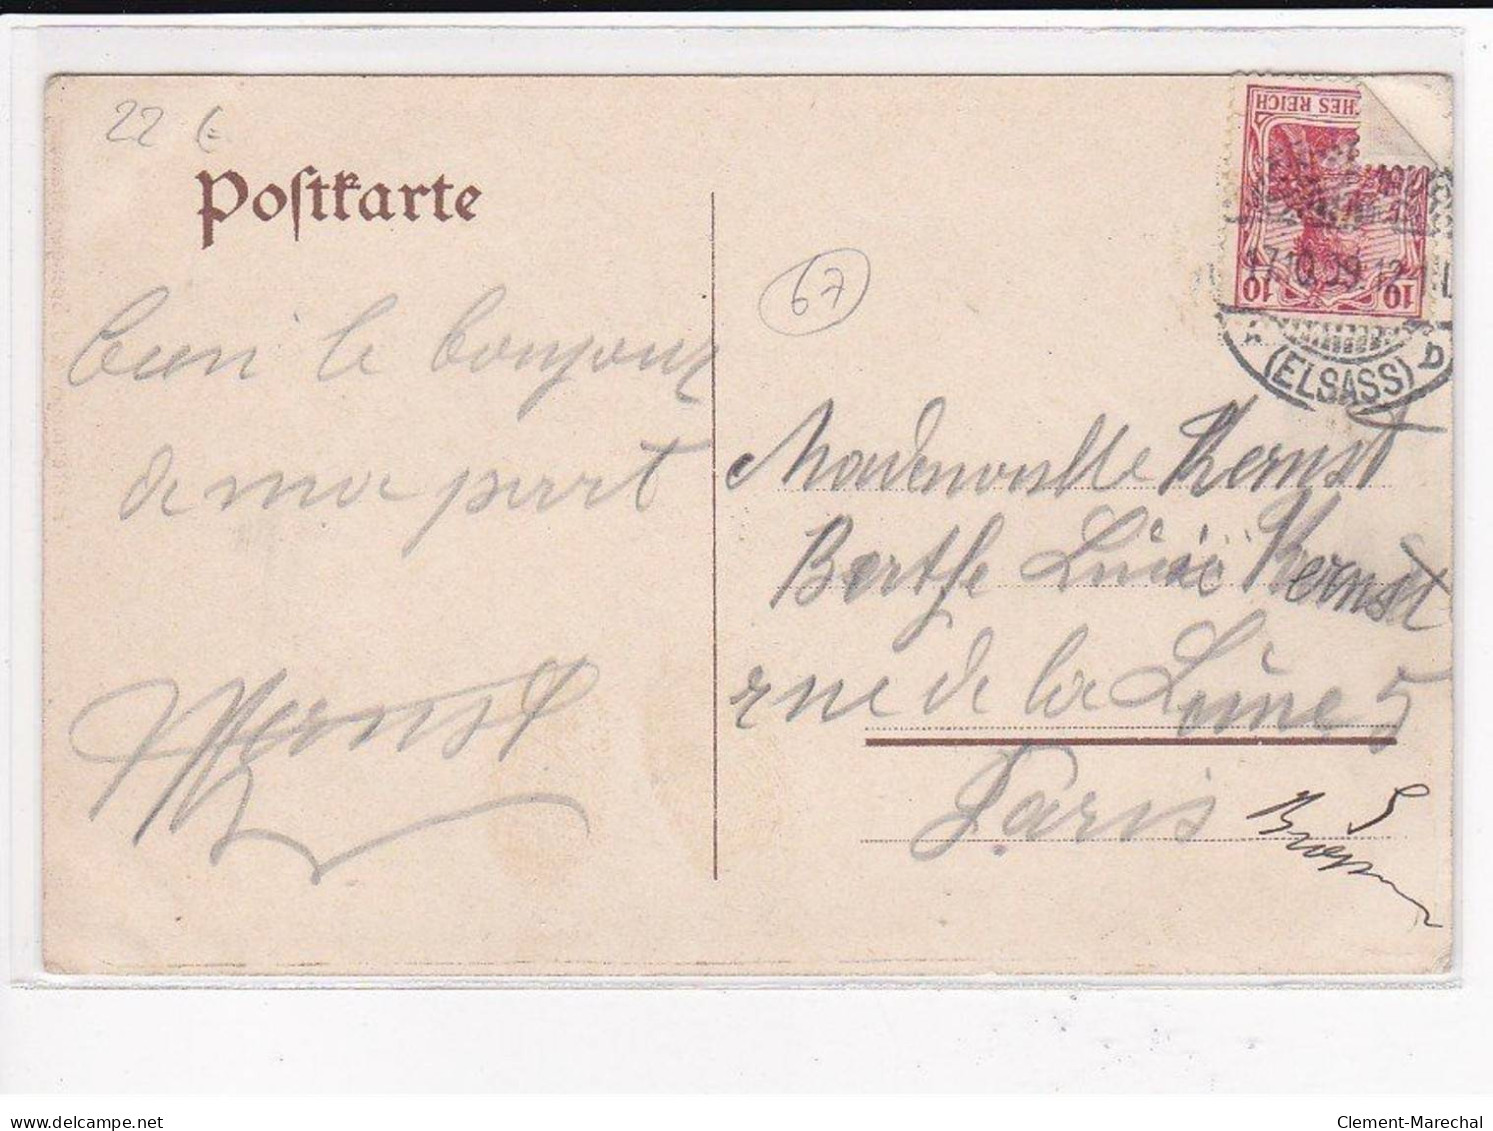 22 €
Postkarte
67
HES REICH
10 10
17.10.09.12
(ELSASS)
D
bien le bonjour
de ma part
Kernst
Mademoiselle Kernst
Berthe Kernst
rue de la Lune 5
Paris
delcampe.net
Clement-Marechal